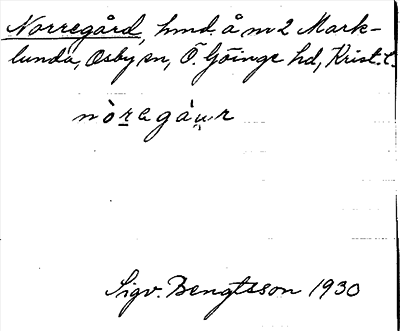 Norregård, hmd å nr 2 Mark-
lunda, Osby sn, Ö. Göinge hd, Krist. l.
nòragáu̯r
Sigv. Bengtsson 1930